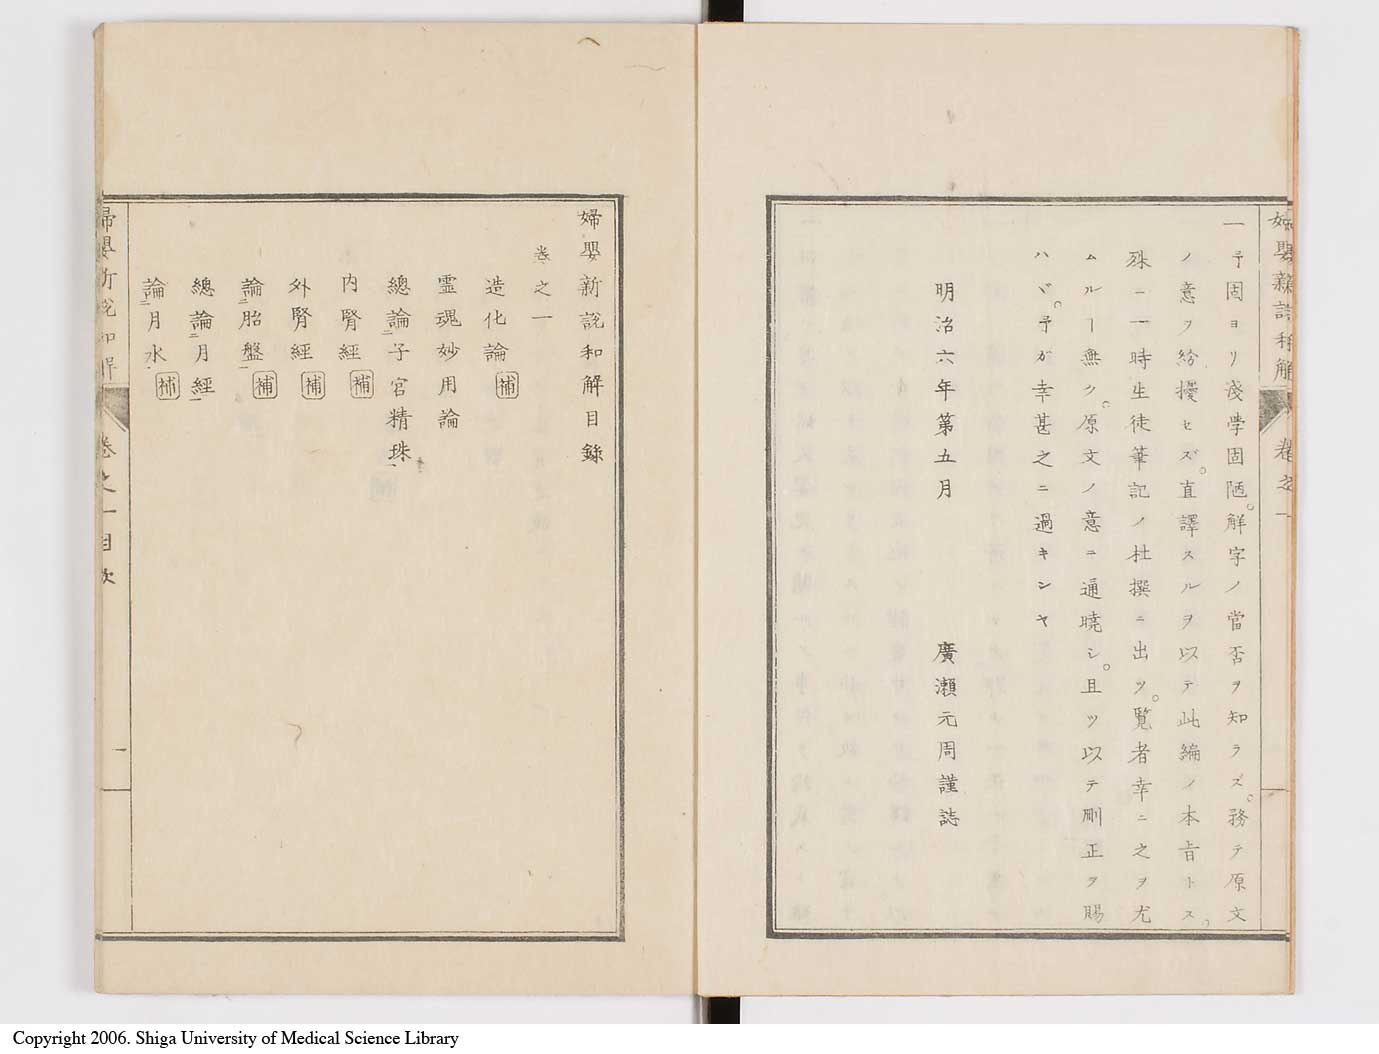 婦嬰新説和解
卷之一
一予固ヨリ淺學固陋。解字ノ當否ヲ知ラズ。務テ原文
ノ意ヲ紛擾セズ。直譯スルヲ以テ此編ノ本旨トス。
殊ニ一時生徒筆記ノ杜撰ニ出ツ。覧者幸ニ之ヲ尤
ムルヿ無ク。原文ノ意ニ通曉シ。且ツ以テ刪正ヲ賜
ハヾ。予ガ幸甚之ニ過キンヤ
明治六年第五月
廣瀬元周謹誌
婦嬰新説和解目録
卷之一
造化論補
霊魂妙用論
總論二子宮精珠一
内腎經補
外腎經補
論二胎盤一補
總論二月經一
論二月水一補
婦嬰新説和解
卷之一目次
一
Copyright 2006. Shiga University of Medical Science Library